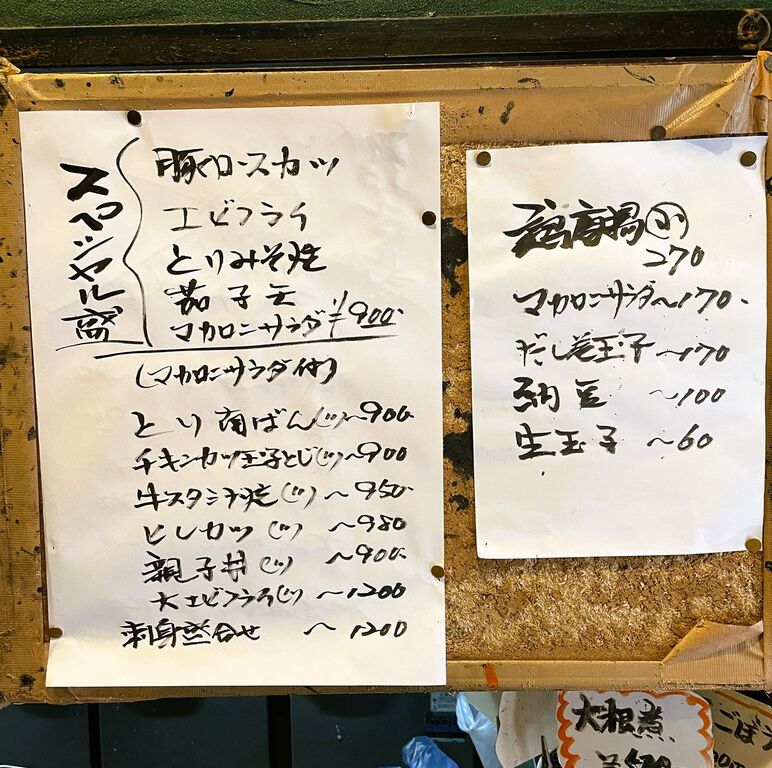 スペシャル盛
豚ロースカツ
エビフライ
とりみそ焼
茄子
マカロニサラダ ¥900.
(マカロニサラダ付)
とり南ばん(ジ)〜900.
チキンカツ玉子とじ(ジ)〜900
牛スタミナ焼(ジ)〜950.
ヒレカツ(ジ)〜980
親子丼(ジ)〜900.
大エビフライ(ジ)〜1200
刺身盛合せ 〜1200
270
マカロニサラダ〜170.
だし巻玉子〜170
納豆 〜100
生玉子 〜60
大根煮
ごぼう